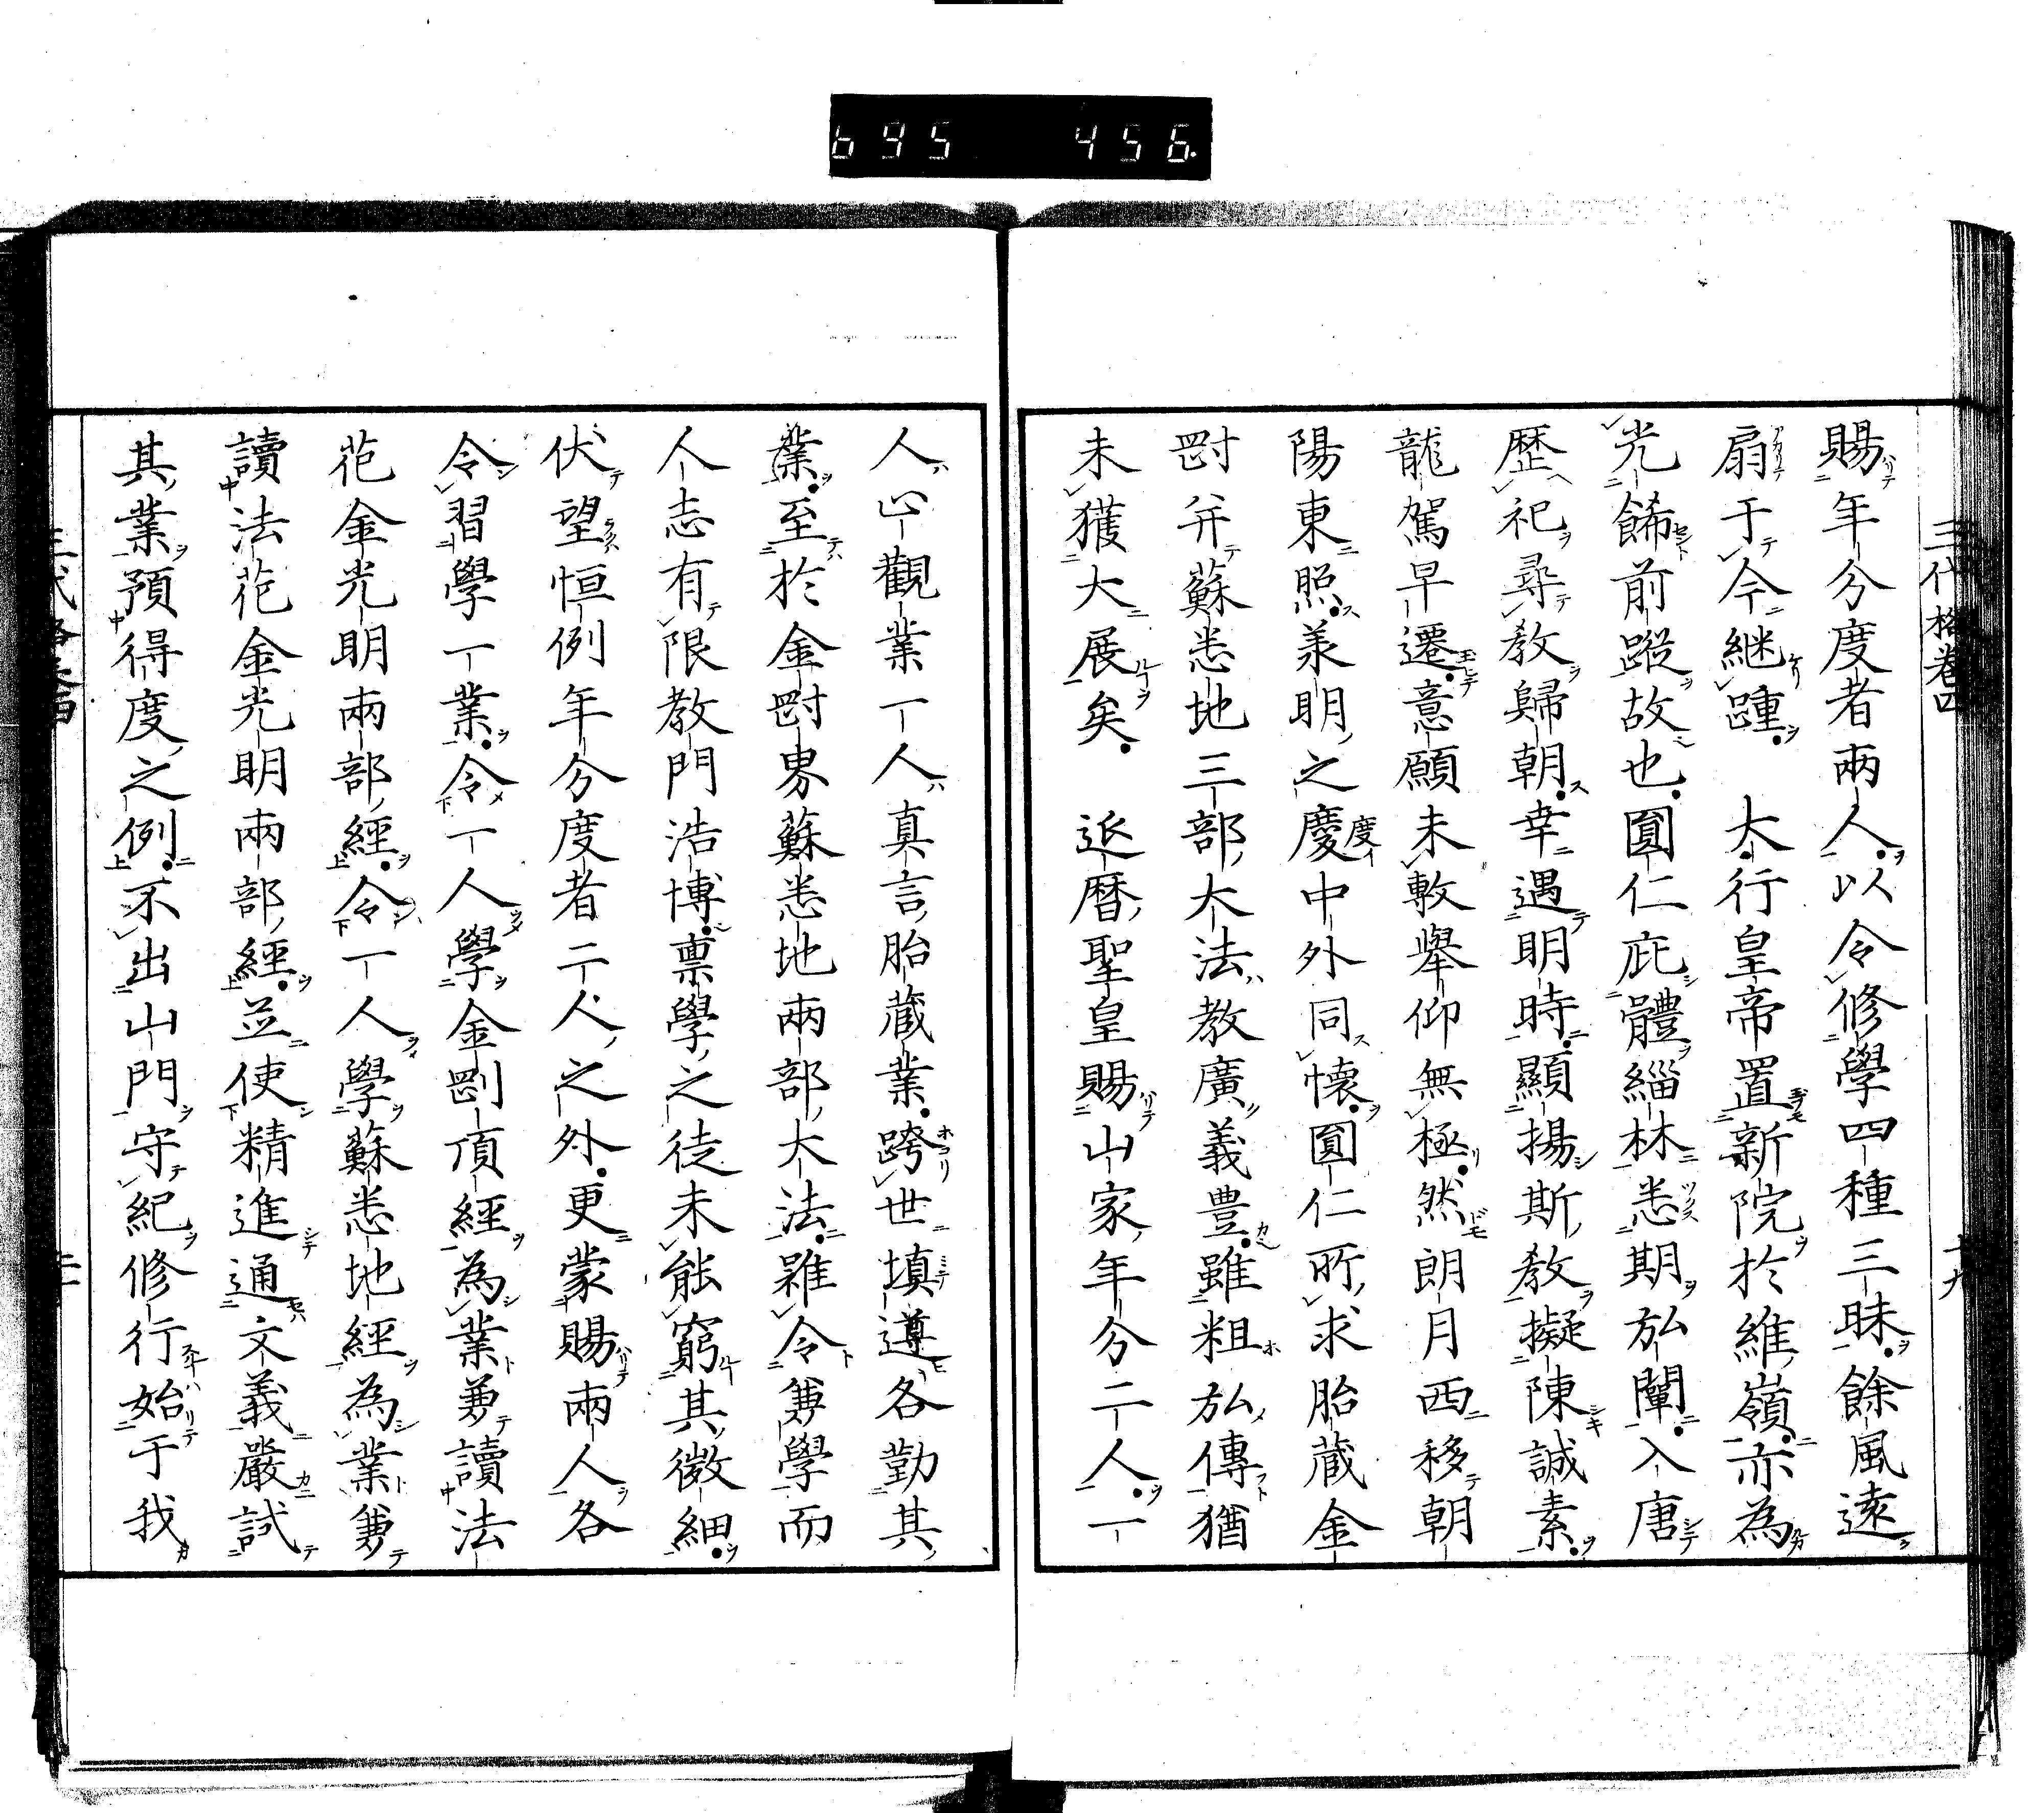 695 456
三代格卷四 十九
賜年分度者兩人以令修學四種三昧餘風遠
扇于今継踵 大行皇帝置新院於維嶺亦為
光餙前蹤故也圓仁庇體緇林悉期弘闡入唐
歴祀尋教歸朝幸遇明時顯揚斯教擬陳誠素
龍駕早遷意願未敷舉仰無極然朗月西移朝
陽東照羕明之慶中外同懷圓仁所求胎蔵金
罸并蘇悉地三部大法教廣義豊雖粗弘傳猶
未獲大展矣 近曆聖皇賜山家年分二人一
人心觀業一人真言胎蔵業跨世填遵各勤其
業至於金罸界蘇悉地兩部大法雖令兼學而
人志有限教門浩博稟學之徒未能窮其微細
伏望恒例年分度者二人之外更蒙賜兩人各
令習學一業令一人學金剛頂經為業兼讀法
花金光明兩部經令一人學蘇悉地經為業兼
讀法花金光明兩部經並使精進通文義嚴試
其業預得度之例不出山門守紀修行始于我